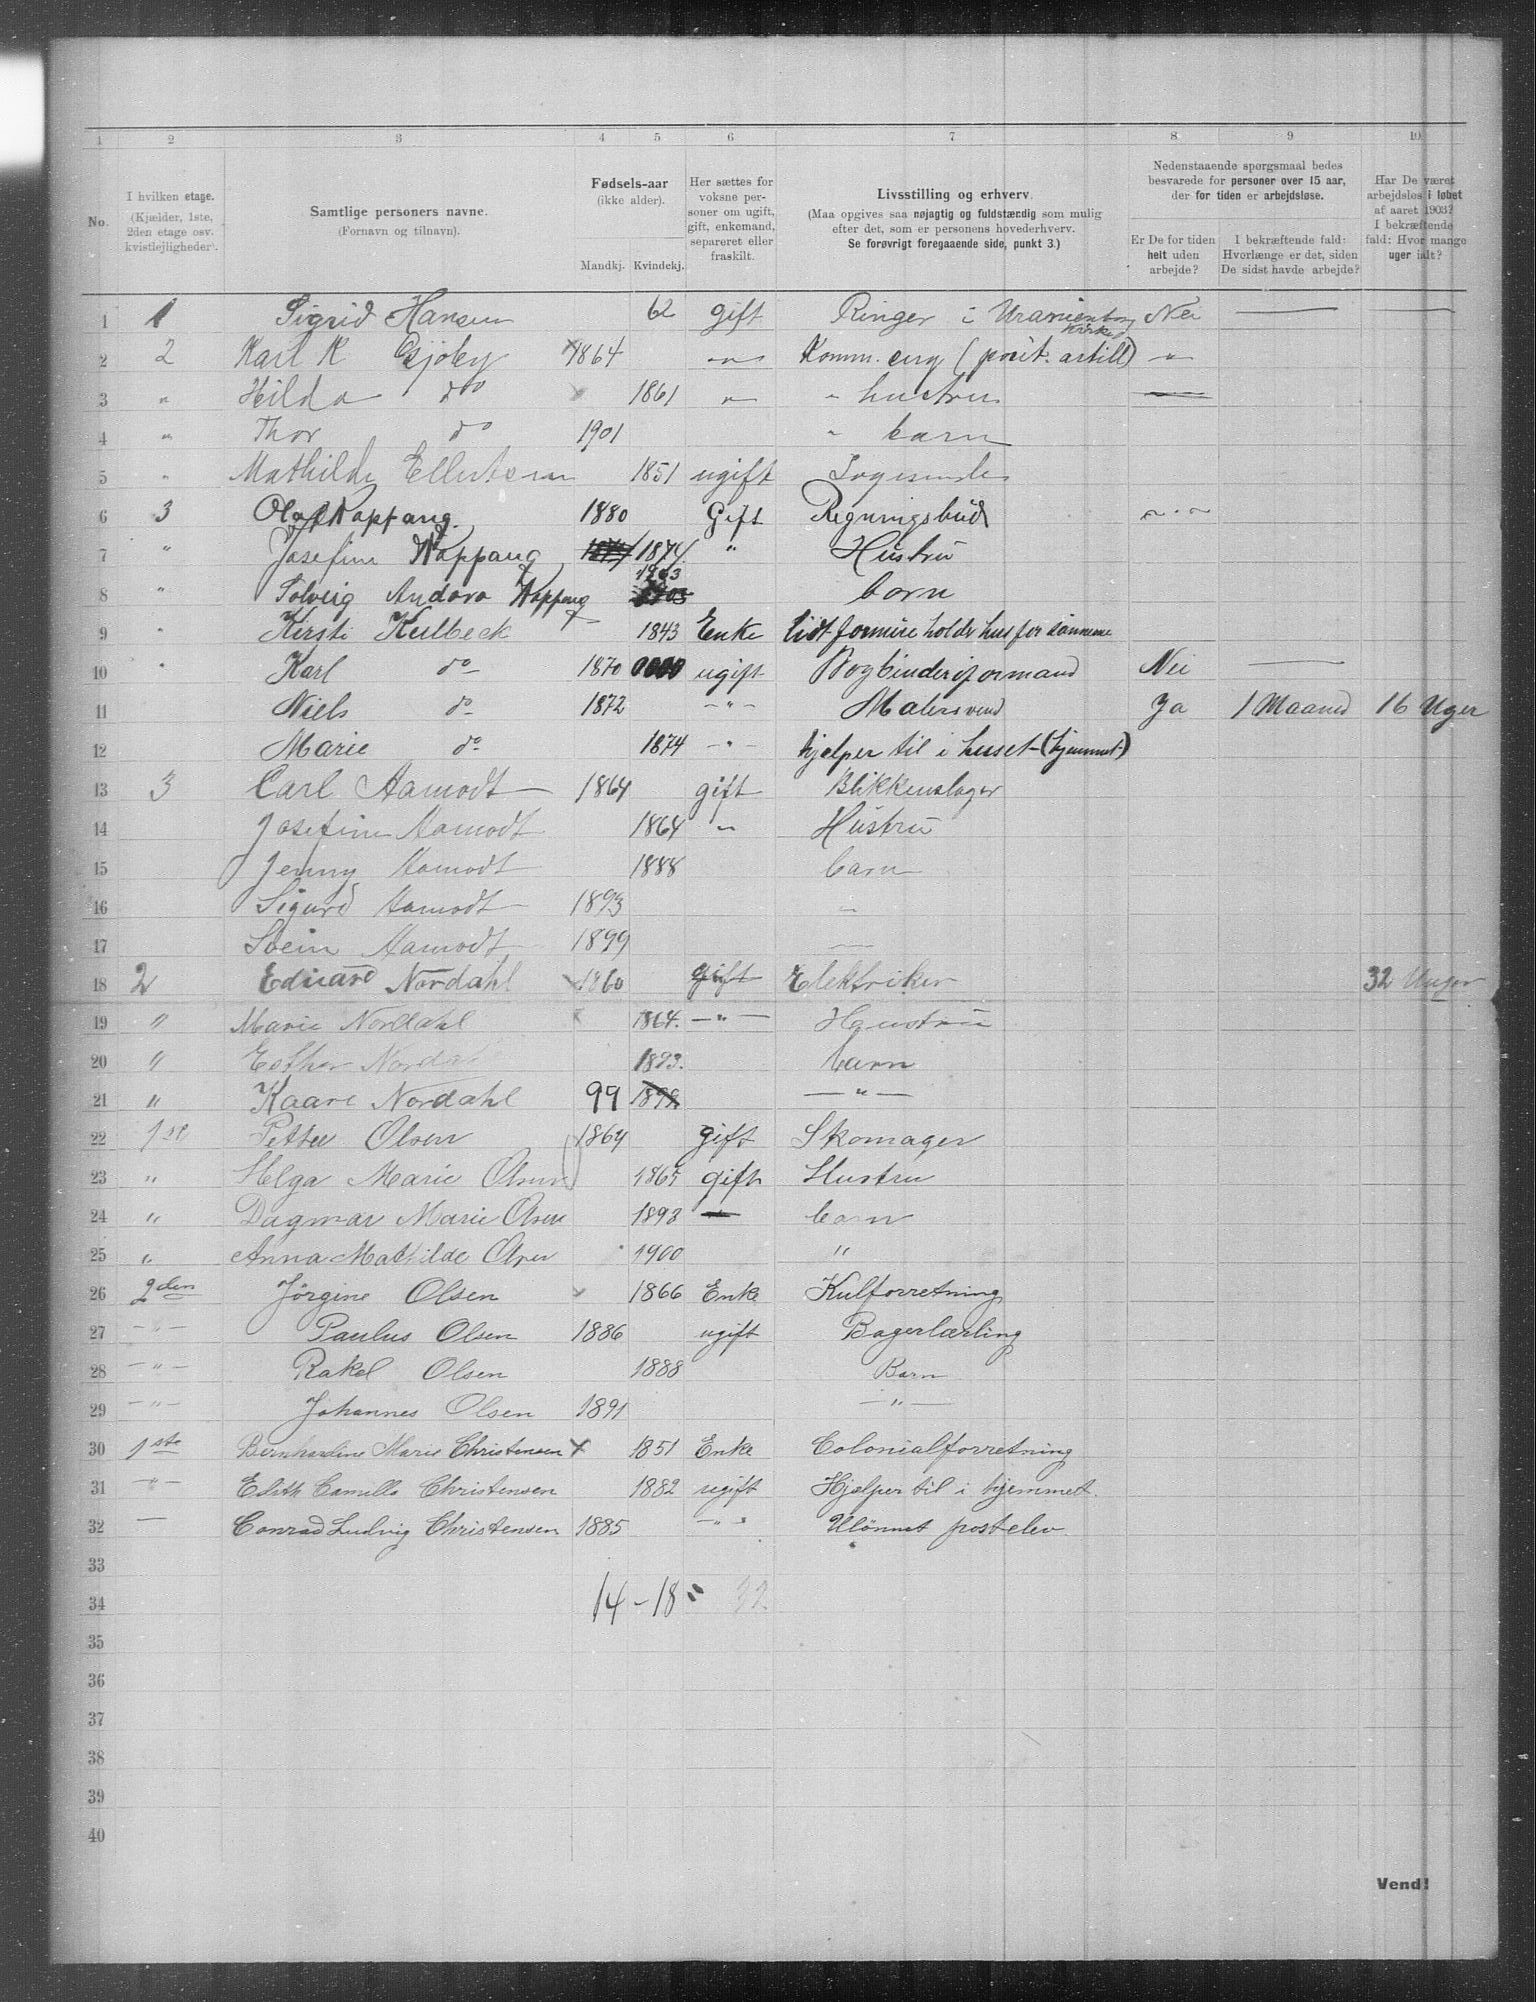 1 2 3 4 5 6 7 8 9 10
No.
I hvilken etage.
(Kjælder, 1ste,
2den etage osv.
kvistlejligheder).
Samtlige personers navne.
(Fornavn og tilnavn).
Fødsels-aar
(ikke alder).
Mandkj. Kvindekj.
Her sættes for
voksne per-
soner om ugift,
gift, enkemand,
separeret eller
fraskilt.
Livsstilling og erhverv.
(Maa opgives saa nøjagtig og fuldstændig som mulig
efter det, som er personens hovederhverv.
Se forøvrigt foregaaende side, punkt 3.)
Nedenstaaende spørgsmaal bedes
besvarede for personer over 15 aar,
der for tiden er arbejdsløse.
Er De for tiden
helt uden
arbejde?
I bekræftende fald:
Hvorlænge er det, siden
De sidst havde arbejde?
Har De været
arbejdsløs i løbet
af aaret 1903?
I bekræftende
fald: Hvor mange
uger ialt?
1 1 Sigrid Hansen 62 gift Ringer i Uranienborg Kirke Nei — —
2 2 Karl K Gjøby 1864 " Komm. erg (posit. artill) "
3 " Hilda do 1861 " " hustru —
4 " Thor do 1901 " barn
5 " Mathilde Ellertsen 1851 ugift
6 3 Olaf Kappang. 1880 Gift Regningsbud "
7 " Josefine Kappang 1874 " Hustru
8 " Solveig Andora Kappang 1903 barn
9 " Kirsti Kulbeck 1843 Enke lidt formue holdr hus for sønnene
10 " Karl do 1870 ugift Bogbinderiformand Nei —
11 Niels do 1872 — " — Malersvend Ja 1 Maaned 16 Uger
12 Marie do 1874 — " — hjelper til i huset (hjemmet)
13 3 Carl Aamodt 1864 gift Blikkenslager
14 Josefine Aamodt 1864 " Hustru
15 Jenny Aamodt 1888 barn
16 Sigurd Aamodt 1893 —
17 Svein Aamodt 1899 —
18 2 Edvard Nordahl 1860 gift Elektriker 32 Unger
19 " Marie Norddahl 1864. — " — Haustru
20 " Esther Nordal 1893. barn
21 " Kaare Nordahl 99 1899 — " —
22 1st Petter Olsen 1864 gift Skomager
23 " Helga Marie Olsen 1865 gift Hustru
24 " Dagmar Marie Olsen 1893 — barn
25 " Anna Mathilde Olsen 1900 "
26 2den Jørgine Olsen 1866 Enke Kulforretning
27 — " — Paulus Olsen 1886 ugift Bagerlærling
28 — " — Rakel Olsen 1888 Barn
29 — " — Johannes Olsen 1891 — " —
30 1ste Bernhardine Marie Christensen x 1851 Enke Colonialforretning
31 — " — Edith Camilla Christensen 1882 ugift Hjælper til i hjemmet.
32 — Conrad Ludvig Christensen 1885 — " — Ulönnet postelev.
33
34 14 - 18 = 32
35
36
37
38
39
40
Vend!